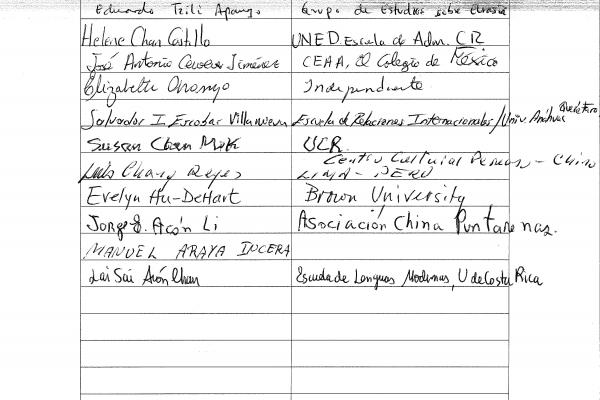 Eduardo Tzili Apango Grupo de Estudios sobre Eurasia
Helene Chan Castillo UNED. Escuela de Adm. CR
José Antonio Cervera Jiménez CEAA, El Colegio de México
Elizabeth Onanyo Independiente
Salvador I. Escobar Villanueva Escuela de Relaciones Internacionales/Univ. Anáhuac Querétaro
Susan Chen Mok UCR
Luis Chang Reyes Centro Cultural Peruano - Chino
LIMA - PERÚ
Evelyn Hu-DeHart Brown University
Jorge E. Acón Li Asociación China Puntarenas.
MANUEL ARAYA INCERA
Lai Sai Acón Chan Escuela de Lenguas Modernas, U de Costa Rica